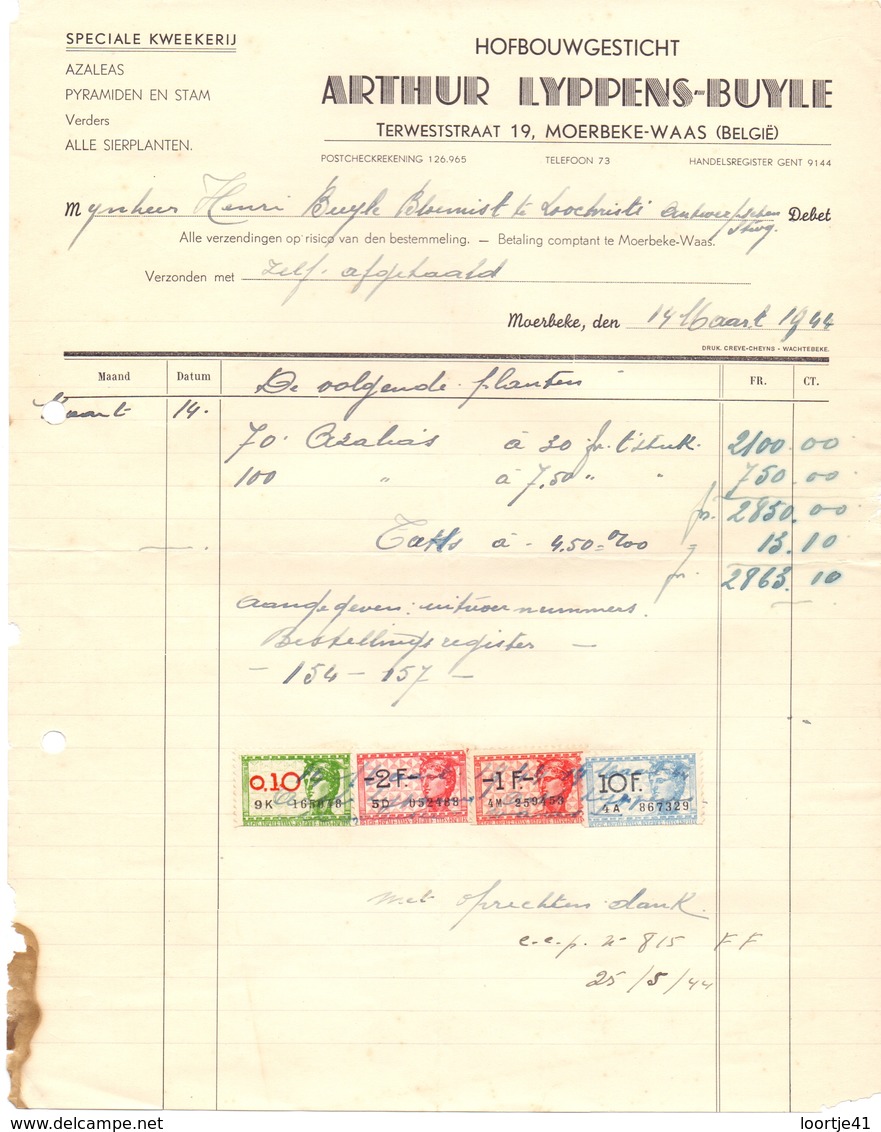 SPECIALE KWEEKERIJ
AZALEAS
PYRAMIDEN EN STAM
Verders
ALLE SIERPLANTEN.
HOFBOUWGESTICHT
ARTHUR LYPPENS-BUYLE
TERWESTSTRAAT 19, MOERBEKE-WAAS (BELGIË)
POSTCHECKREKENING 126.965 TELEFOON 73 HANDELSREGISTER GENT 9144
Mynheer Henri Buyle Bloemist te Loochristi Antwerpschen stwg. Debet
Alle verzendingen op risico van den bestemmeling. — Betaling comptant te Moerbeke-Waas.
Verzonden met zelf. afgehaald
Moerbeke, den 14 Maart 1944
DRUK. CREVE-CHEYNS - WACHTEBEKE.
Maand Datum De volgende planten FR. CT.
Maart 14.
70. Azaleas à 30 fr. t'stuk. 2100.00
100 " à 7,50 " " 750.00
fr. 2850.00
à - 4.50 = %00 = 13.10
fr. 2863.10
aangegeven: uitvoernummers.
Bestellingsregister —
- 154 - 157 -
0.10 -2F.- -1F.- 10F.
9K 165848 5D 052488 4M 259453 4A 867329
met oprechten dank.
c.c.p. n° 815 FF
25/5/44
delcampe.net loortje41